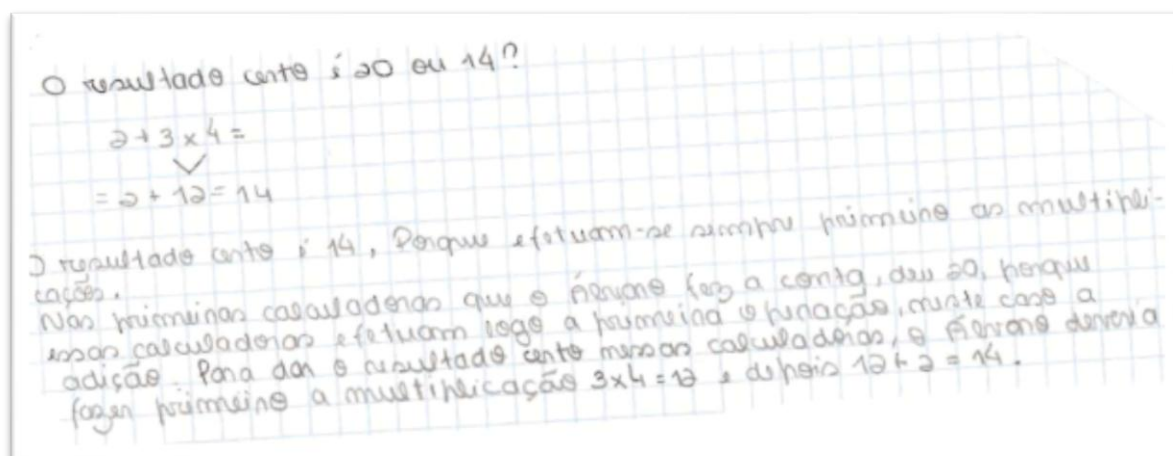 O resultado certo é 20 ou 14?
2 + 3 x 4 =
= 2 + 12 = 14
O resultado certo é 14, Porque efetuam-se sempre primeiro as multipli-
cações.
Nas primeiras calculadoras que o fez a conta, deu 20, porque
essas calculadoras efetuam logo a primeira operação, neste caso a
adição. Para dar o resultado certo nessas calculadoras, o deveria
fazer primeiro a multiplicação 3x4=12 e depois 12+2=14.